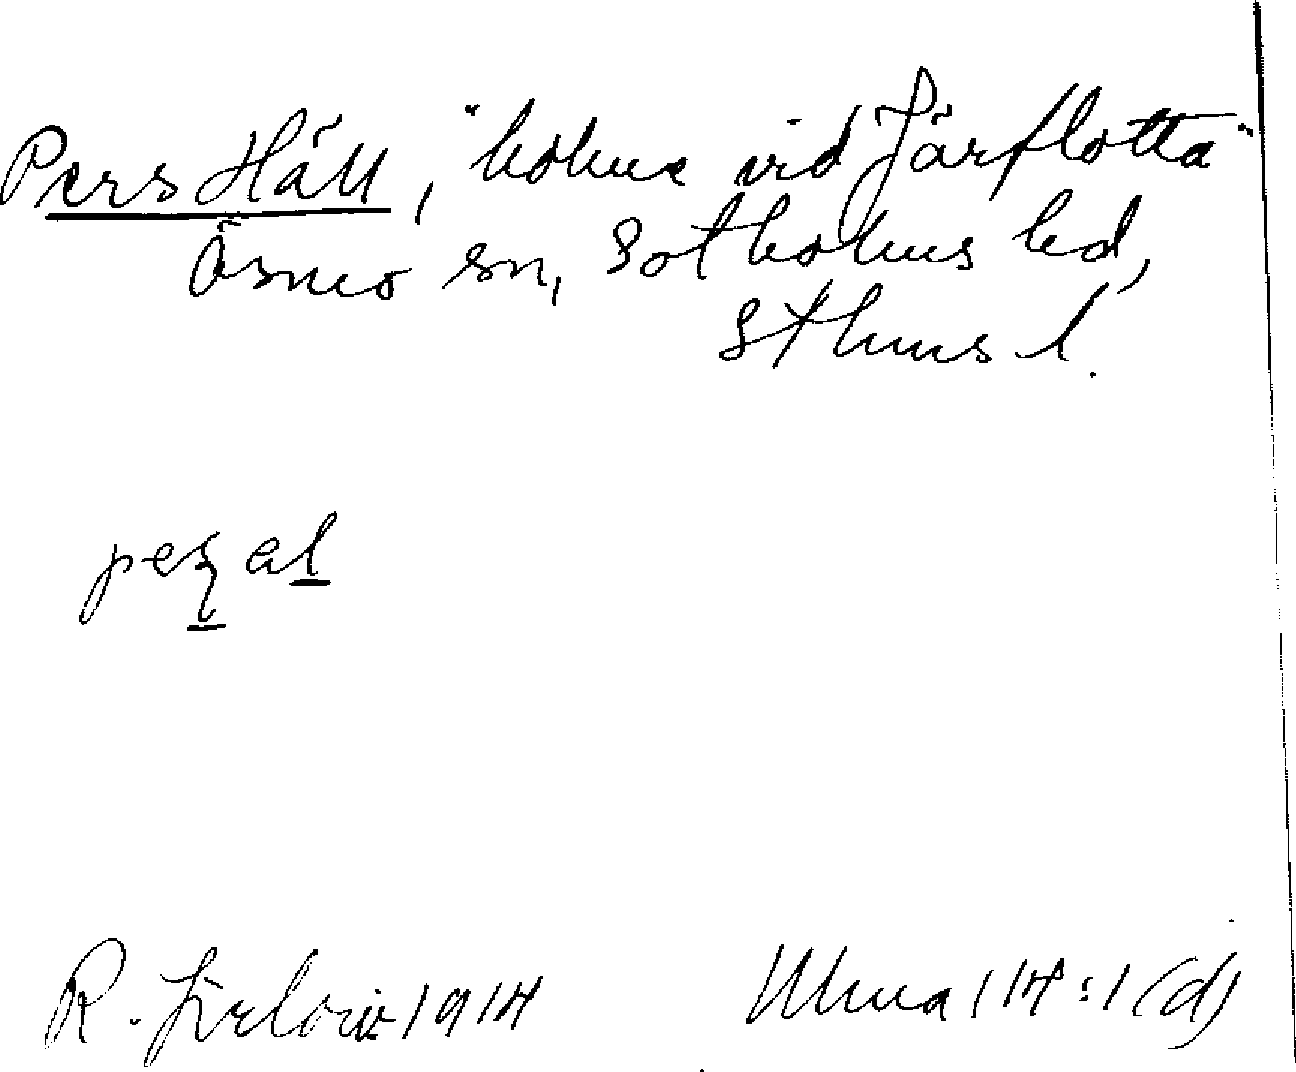 Pers Häll, "holme vid Järflotta"
Ösmo sn, Sotholms hd,
Sthms l.
R. Jirlow 1914 Ulma 114:1 (d)